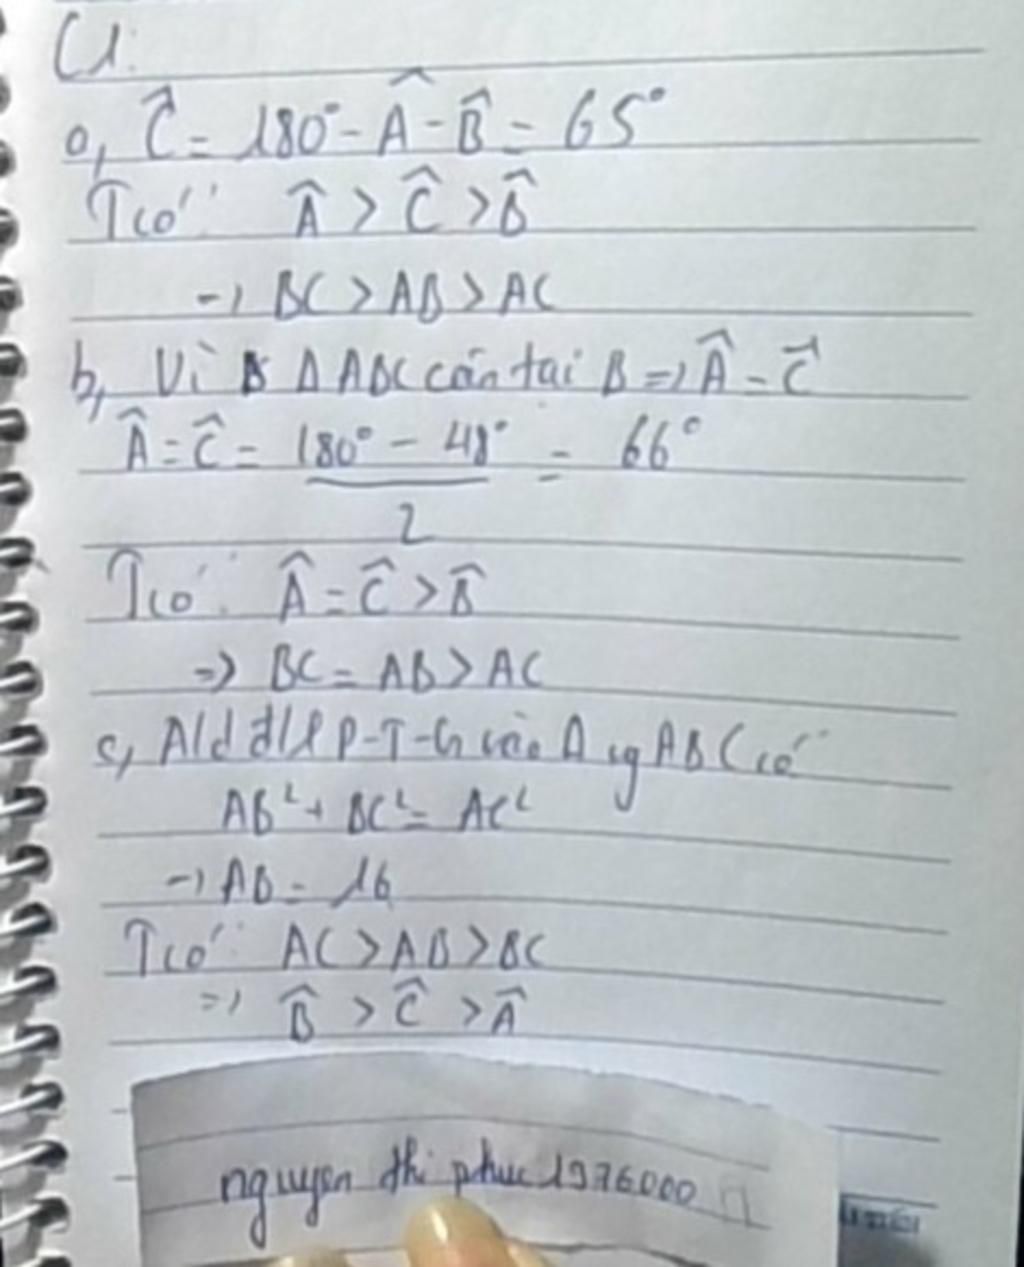 C1:
a, Ĉ = 180° - Â - B̂ = 65°
Tcó: Â > Ĉ > B̂
→ BC > AB > AC
b, Vì Δ ABC cân tại B => Â = Ĉ
Â = Ĉ = (180° - 48°)/2 = 66°
Tcó: Â = Ĉ > B̂
=> BC = AB > AC
c, A/d đ/l P-T-G vào Δ vg ABC có:
AB² + BC² = AC²
→ AB = 16
Tcó: AC > AB > BC
=> B̂ > Ĉ > Â
nguyen thi phuc 1976000